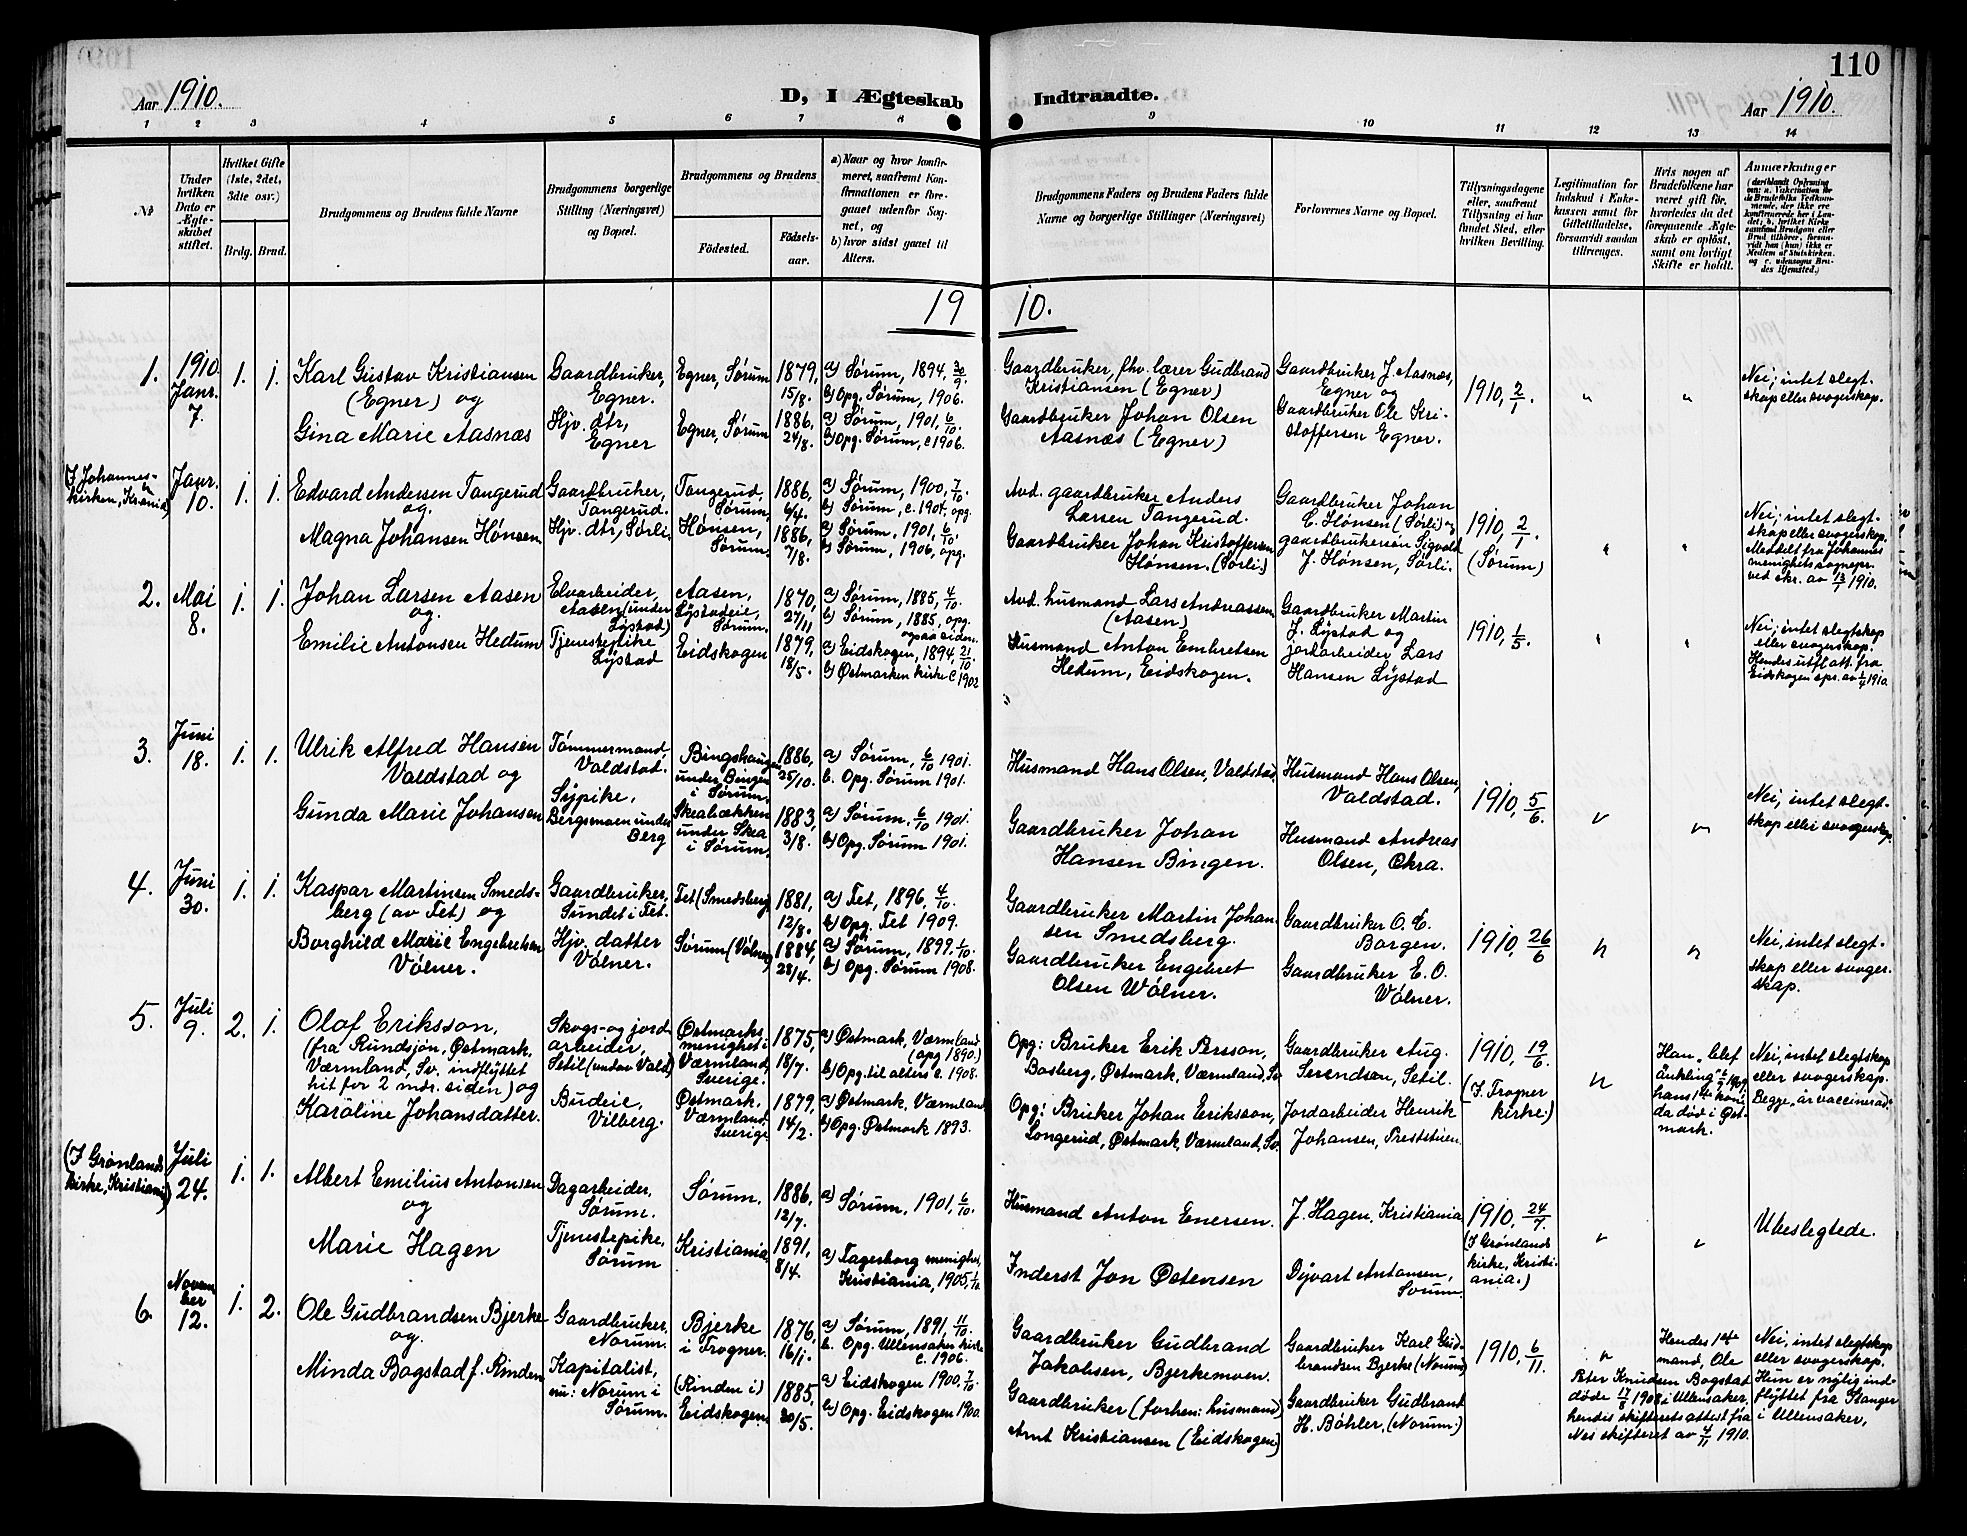 110
Aar 1910.
D, I Ægteskab
Indtraadte.
Aar 1910.
1 2 3 4 5 6 7 8 9 10 11 12 13 14
№
Under hvilken Dato er Ægteskabet stiftet.
Hvilket Gifte (1ste, 2det, 3dte osv.)
Brdg. Brud.
Brudgommens og Brudens fulde Navne
Brudgommens borgerlige Stilling (Næringsvei) og Bopæl.
Brudgommens og Brudens
Födested.
Födselsaar.
a) Naar og hvor konfirmeret, saafremt Konfirmationen er foregaaet udenfor Sognet, og
b) hvor sidst gaaet til Alters.
Brudgommens Faders og Brudens Faders fulde Navne og borgerlige Stillinger (Næringsvei)
Forlovernes Navne og Bopæl.
Tillysningsdagene eller, saafremt Tillysning ei har fundet Sted, efter hvilken Bevilling.
Legitimation for Indskud i Enkekassen samt for Giftetilladelse, forsaavidt saadan tiltrænges.
Hvis nogen af Brudefolkene har været gift för, hvorledes da det foregaaende Ægteskab er oplöst, samt om lovligt Skifte er holdt.
Anmærkninger
19
10.
1.
1910
Janr.
7.
1. 1.
Karl Gustav Kristiansen
(Egner) og
Gina Marie Aasnæs
Gaardbruker,
Egner.
Hjv. dtr,
Egner
Egner, Sørum
Egner, Sørum
1879,
15/8.
1886,
24/8.
a) Sørum, 1894, 30/9.
b) Opg. Sørum, 1906.
a) Sørum, 1901, 6/10.
b) Opg. Sørum, c 1906.
Gaardbruker, fhv. lærer Gudbrand
Kristiansen (Egner)
Gaardbruker Johan Olsen
Aasnæs (Egner)
Gaardbruker J. Aasnæs,
Egner og
Gaardbruker Ole Kri-
stoffersen Egner.
1910, 2/1.
"
"
Nei; intet slegt-
skap eller svogerskap.
(I Johannes-
kirken, Kr.ania)
Janr.
10.
1. 1.
Edvard Andersen Tangerud
og
Magna Johansen Hønsen
Gaardbruker,
Tangerud.
Hjv. dtr, Sørli
Tangerud,
Sørum,
Hønsen,
Sørum.
1886,
6/4.
1886,
7/8.
a) Sørum, 1900, 7/10
b) Sørum, c. 1904, opg.
a) Sørum, 1901, 6/10.
b) Sørum, 1906, opg.
Avd. gaardbruker Anders
Larsen Tangerud.
Gaardbruker Johan Kristoffersen
Hønsen. (Sørli.)
Gaardbruker Johan
C. Hønsen (Sørli) og
gaardbrukersøn Sigvald
J. Hønsen, Sørli.
1910, 2/1.
(Sørum)
"
"
Nei; intet slegt-
skap eller svogerskap.
Meddelt fra Johannes
menighets sognepr.
ved skr. av 13/1 1910.
2.
Mai
8.
1. 1.
Johan Larsen Aasen
og.
Emilie Antonsen Hedum
Elvarbeider,
Aasen (under
Lystad)
Tjenestepike
Lystad
Aasen,
Lystadeie,
Sørum.
Eidskogen
1870,
27/11
1879,
18/5.
a) Sørum, 1885, 4/10.
b) Sørum, 1885, opg.
ogsaa siden.
a) Eidskogen, 1894, 21/10
b) Østmarken kirke c 1902
Avd. husmand Lars Andreassen
(Aasen)
Husmand Anton Embretsen
Hedum, Eidskogen.
Gaardbruker Martin
J. Lystad og
jordarbeider Lars
Hansen Lystad
1910, 1/5.
"
"
Nei; intet slegtskap
eller svogerskap.
Hendes utfl. att. fra
Eidskogen spr. av 1/4 1910.
3.
Juni
18.
1. 1.
Ulrik Alfred Hansen
Valdstad og
Gunda Marie Johansen
Tømmermand,
Valdstad.
Sypike,
Bergsmoen under
Berg
Bingshaugen
under Bingen
i Sørum.
Skeabækken
under Skea
i Sørum.
1886,
25/10.
1883,
3/8.
a) Sørum, 6/10 1901.
b. Opg. Sørum 1901.
a) Sørum. 6/10 1901.
b) Opg. Sørum 1901.
Husmand Hans Olsen, Valdstad
Gaardbruker Johan
Hansen Bingen.
Husmand Hans Olsen,
Valdstad.
Husmand Andreas
Olsen, Økra.
1910, 5/6.
"
"
Nei, intet slegt-
skap eller svogerskap.
4.
Juni
30.
1. 1.
Kaspar Martinsen Smeds-
berg (av Fet) og
Borghild Marie Engebretsen
Vølner.
Gaardbruker,
Sundet i Fet.
Hjv. datter
Vølner.
Fet (Smedsberg)
Sørum (Vølner)
1881,
12/8.
1884,
28/4.
a) Fet, 1896, 4/10.
b) Opg. Fet 1909.
a) Sørum, 1899. 1/10.
b) Opg. Sørum 1908.
Gaardbruker Martin Johan-
sen Smedsberg.
Gaardbruker Engebret
Olsen Wølner.
Gaardbruker O. E.
Borgen.
Gaardbruker E. O.
Wølner.
1910, 26/6
"
"
Nei, intet slegt-
skap eller svoger-
skap.
5.
Juli
9.
2. 1.
Olof Eriksson,
(fra Rundsjön, Østmark,
Værmland, Sv. indflyttet
hit for 2 mdr. siden) og
Karoline Johansdatter.
Skogs- og jord
arbeider,
Setil (under Vald)
Budeie,
Vilberg.
Østmarks
menighet i
Værmland,
Sverige.
Østmark,
Værmland,
Sverige
1875,
18/7.
1879,
14/2.
a) Østmark, Værmland
(opg 1890.)
b) Opg. til alters c. 1908.
a) Østmark, Værmland
b) Opg. Østmark 1893.
Opg: Bruker Erik Persson,
Bosberg, Østmark, Værmland, Sv.
Opg: Bruker Johan Eriksson,
Longerud, Østmark, Værmland, Sv.
Gaardbruker Aug.
Serendsen, Setil.
Jordarbeider Henrik
Johansen, Prestetuen.
1910, 19/6.
(I Frogner
kirke.)
"
Han „blef
änkling" 6/2 1909,
hans 1ste kvin-
da død i Øst-
mark.
Nei, intet slegtskap
eller svogerskap.
Begge „är vaccinerad.
(I Grønlands
kirke, Kristiania)
Juli
24.
1. 1.
Albert Emilius Antonsen
og
Marie Hagen
Dagarbeider,
Sørum.
Tjenestepike,
Sørum
Sørum.
Kristiania
1886,
12/7.
1891,
8/4.
a) Sørum, 1901, 6/10.
a) Fagerborg menighet,
Kristiania, 1905, 1/10.
Husmand Anton Enersen.
Inderst Jon Østensen
J. Hagen, Kristiania
Dyvart Antonsen,
Sørum.
1910, 24/7
(I Grønlands
kirke, Kristi-
ania.)
"
"
Ubeslegtede.
6.
Novem
ber
12.
1. 2.
Ole Gudbrandsen Bjerke
og.
Minda Bogstad f. Rinden
Gaardbruker,
Norum.
Kapitalist,
nu: Norum i
Sørum.
Bjerke
i Frogner.
(Rinden i)
Eidskogen
1876,
16/1.
1885,
20/5.
a) Sørum, 1891, 11/10.
b. Opg. Ullensaker kirke
c. 1906.
a) Eidskogen 1900, 7/10
b) Opg. Eidskogen 1900.
Gaardbruker Gudbrand
Jakobsen, Bjerkemoen.
Gaardbruker (forhen: husmand)
Arnt Kristiansen (Eidskogen)
Gaardbruker Karl Gud-
brandsen Bjerke (Norum)
Gaardbruker Gudbrand
H. Bøhler, (Norum:)
1910, 6/11.
"
Hendes 1ste
mand, Ole
Peter Knudsen Bogstad
døde 17/8 1908 i Ullensaker,
hendes skifteretsattest fra
Nes skifteret av 4/11 1910.
Nei, intet slegtskap
eller svogerskap.
Hun er nylig ind-
flyttet fra Stanger
i Ullensaker,